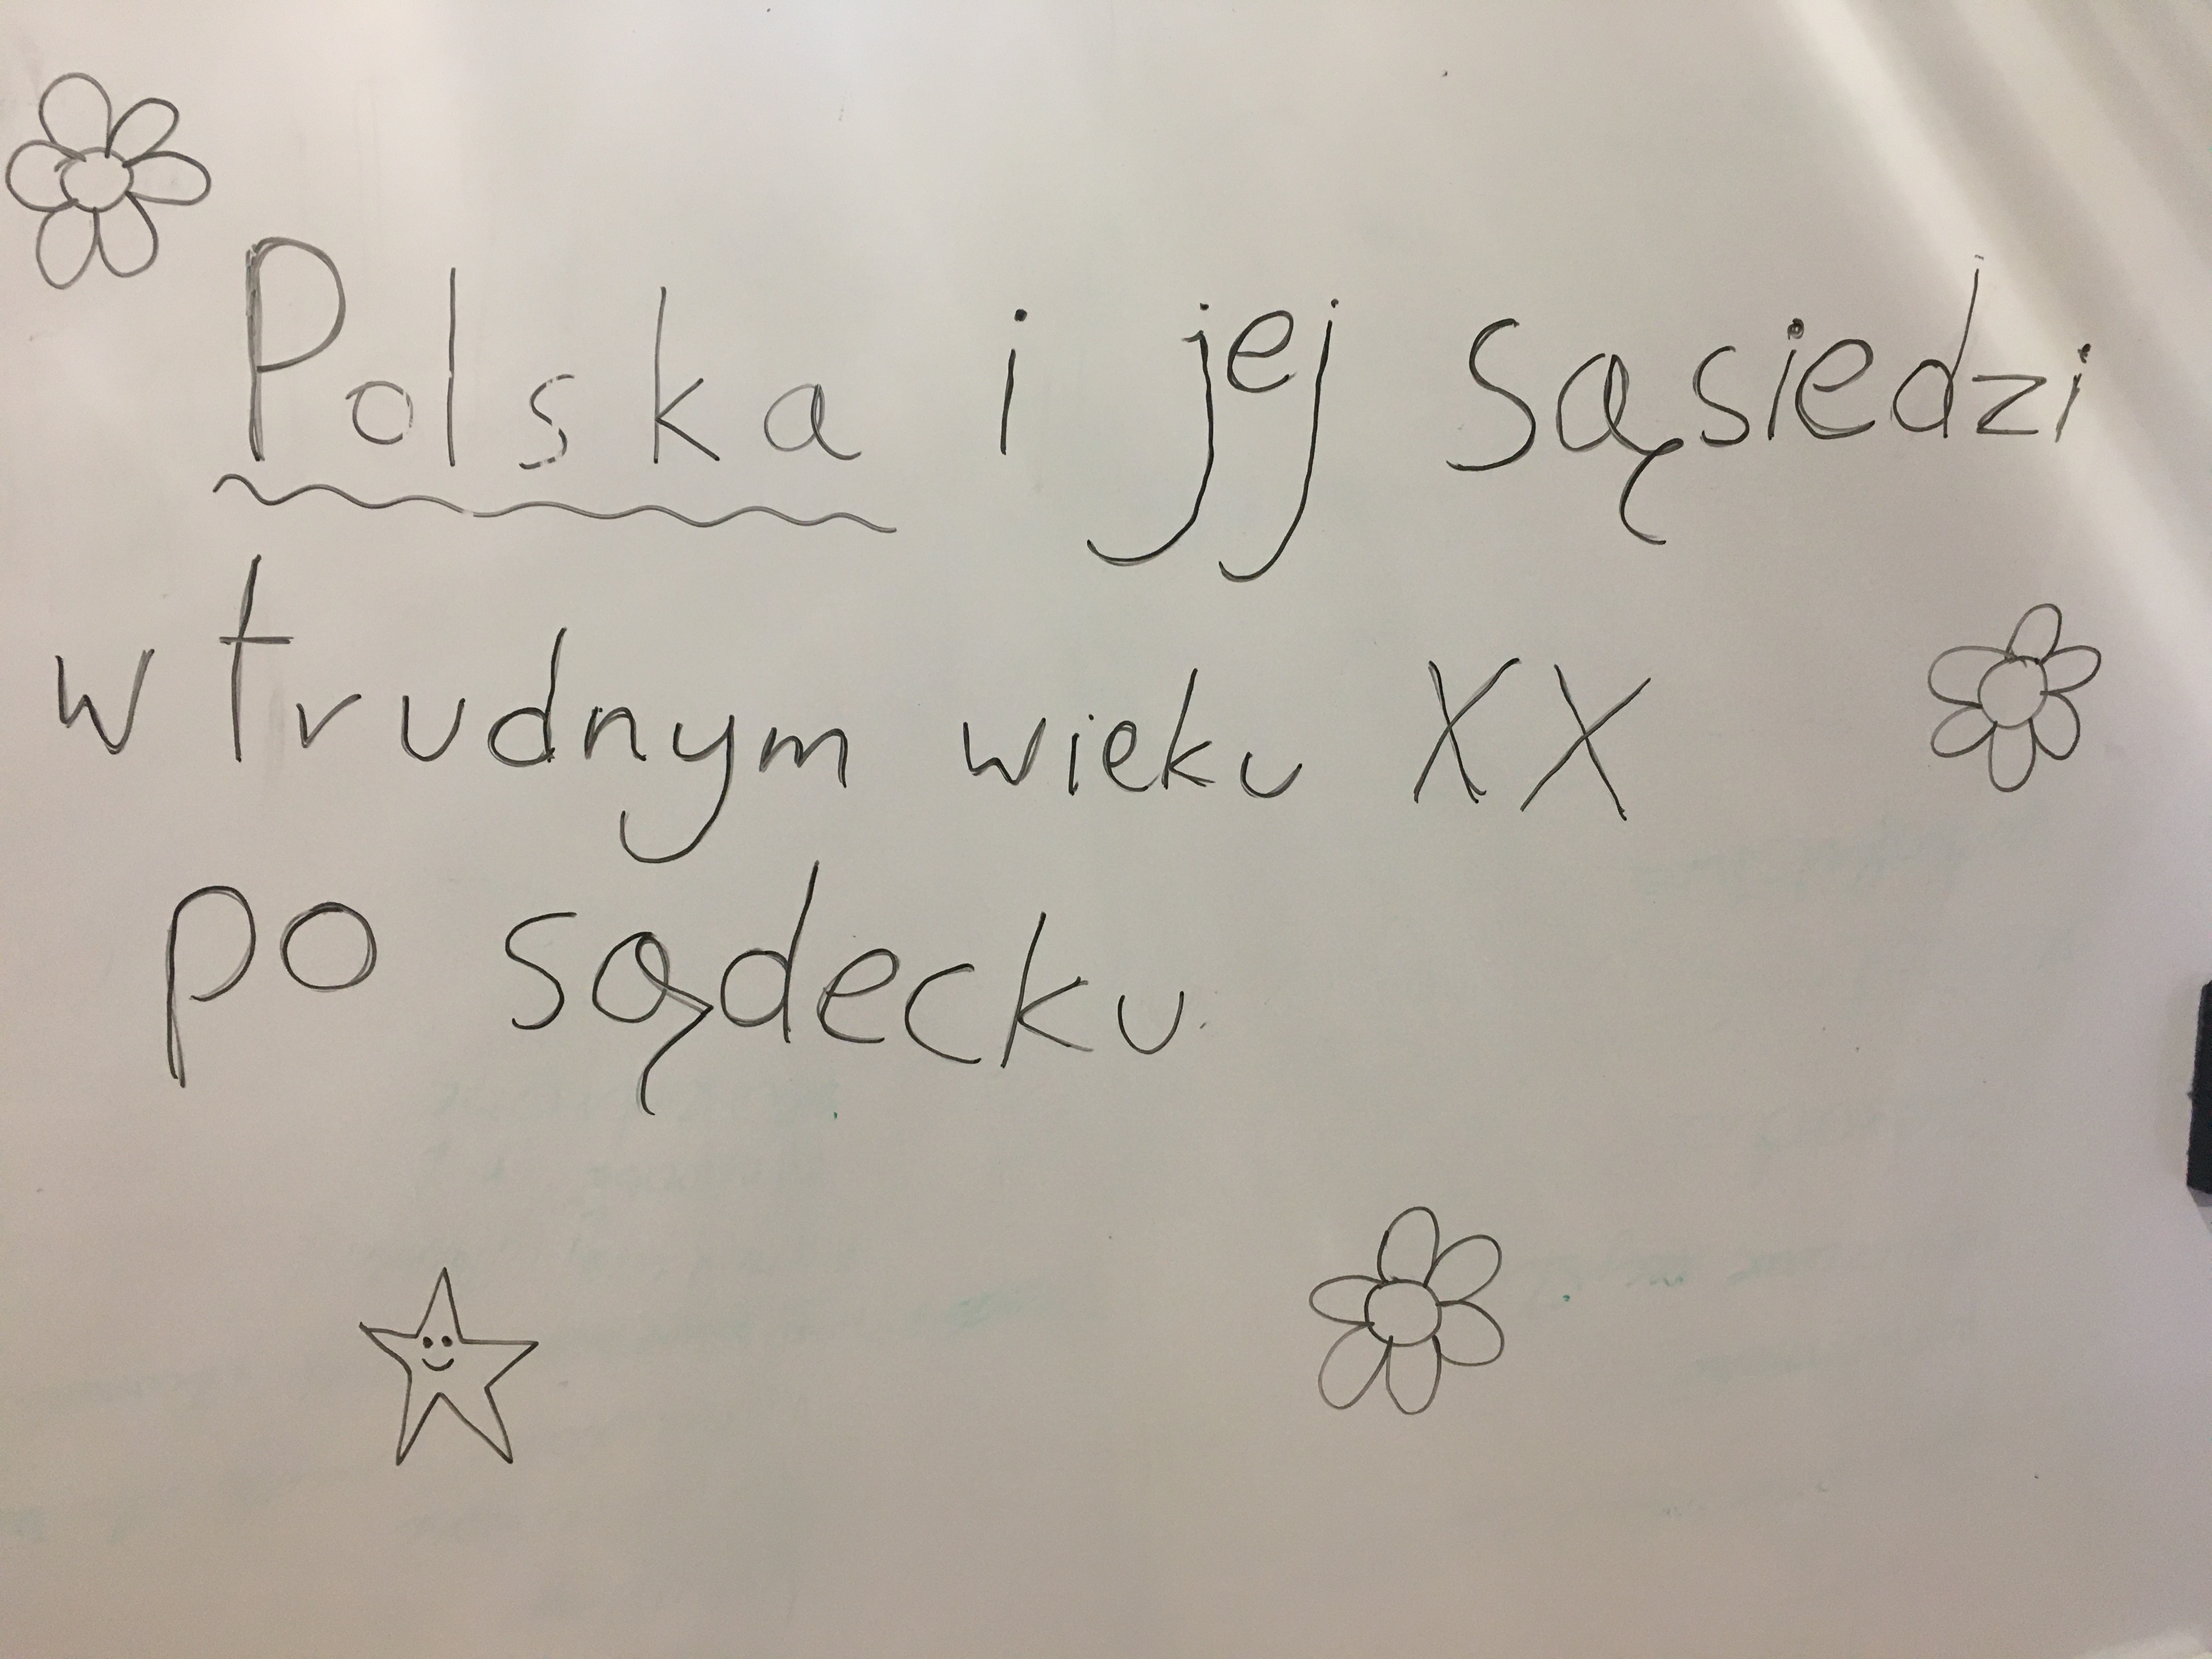 Polska i jej sąsiedzi
w trudnym wieku XX
po sądecku